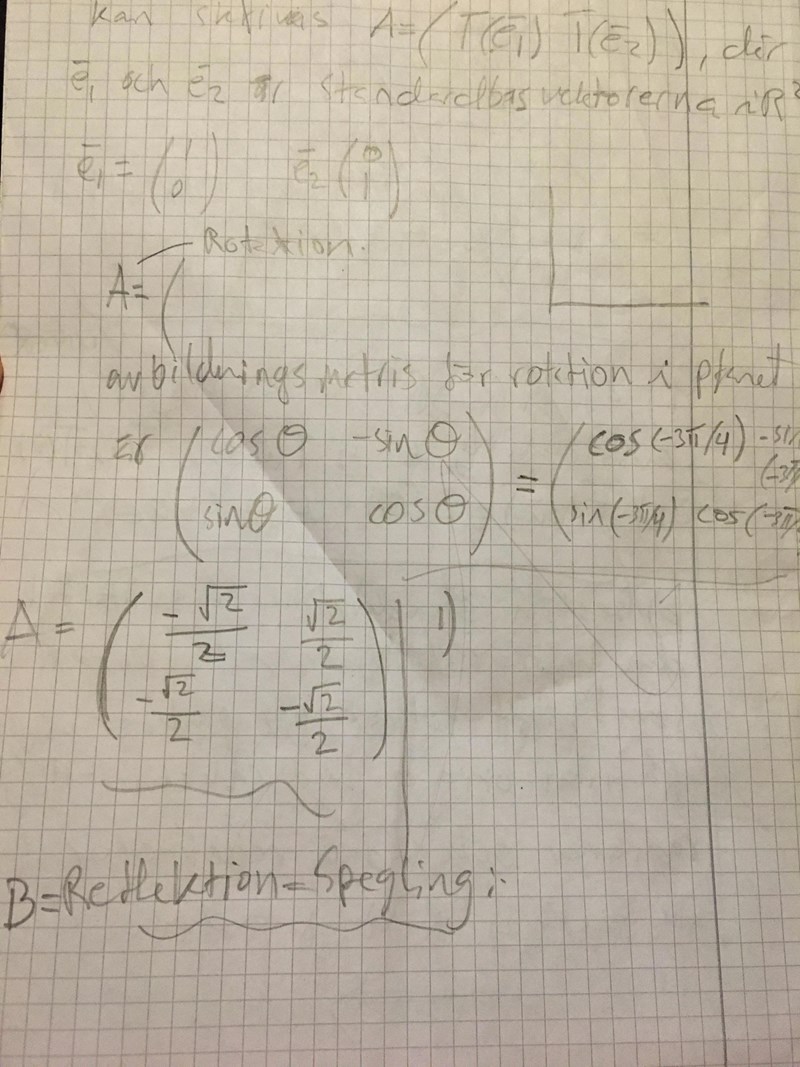 kan skrivas A = (T(ē₁) T(ē₂)), där
ē₁ och ē₂ är standardbasvektorerna i R²
ē₁ = (1 0) ē₂ (0 1)
Rotation.
A = (
avbildnings matris för rotation i planet
är (cos θ -sin θ sin θ cos θ) = (cos(-3π/4) -sin (-3π sin(-3π/4) cos(-3π/
A = (-√2/2 √2/2 -√2/2 -√2/2) 1)
B=Reflektion=Spegling: